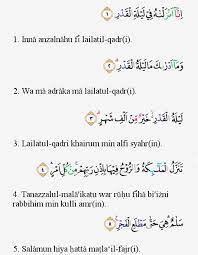 إِنَّا أَنْزَلْنٰهُ فِيْ لَيْلَةِ الْقَدْرِ ١
1. Innā anzalnāhu fī lailatil-qadr(i).
وَمَآ أَدْرٰىكَ مَا لَيْلَةُ الْقَدْرِ ٢
2. Wa mā adrāka mā lailatul-qadr(i).
لَيْلَةُ الْقَدْرِ خَيْرٌ مِّنْ أَلْفِ شَهْرٍ ٣
3. Lailatul-qadri khairum min alfi syahr(in).
تَنَزَّلُ الْمَلٰٓئِكَةُ وَالرُّوْحُ فِيْهَا بِإِذْنِ رَبِّهِمْ مِّنْ كُلِّ أَمْرٍ ٤
4. Tanazzalul-malā'ikatu war rūḥu fīhā bi'iżni
rabbihim min kulli amr(in).
سَلٰمٌ هِيَ حَتّٰى مَطْلَعِ الْفَجْرِ ٥
5. Salāmun hiya ḥattā maṭla'il-fajr(i).